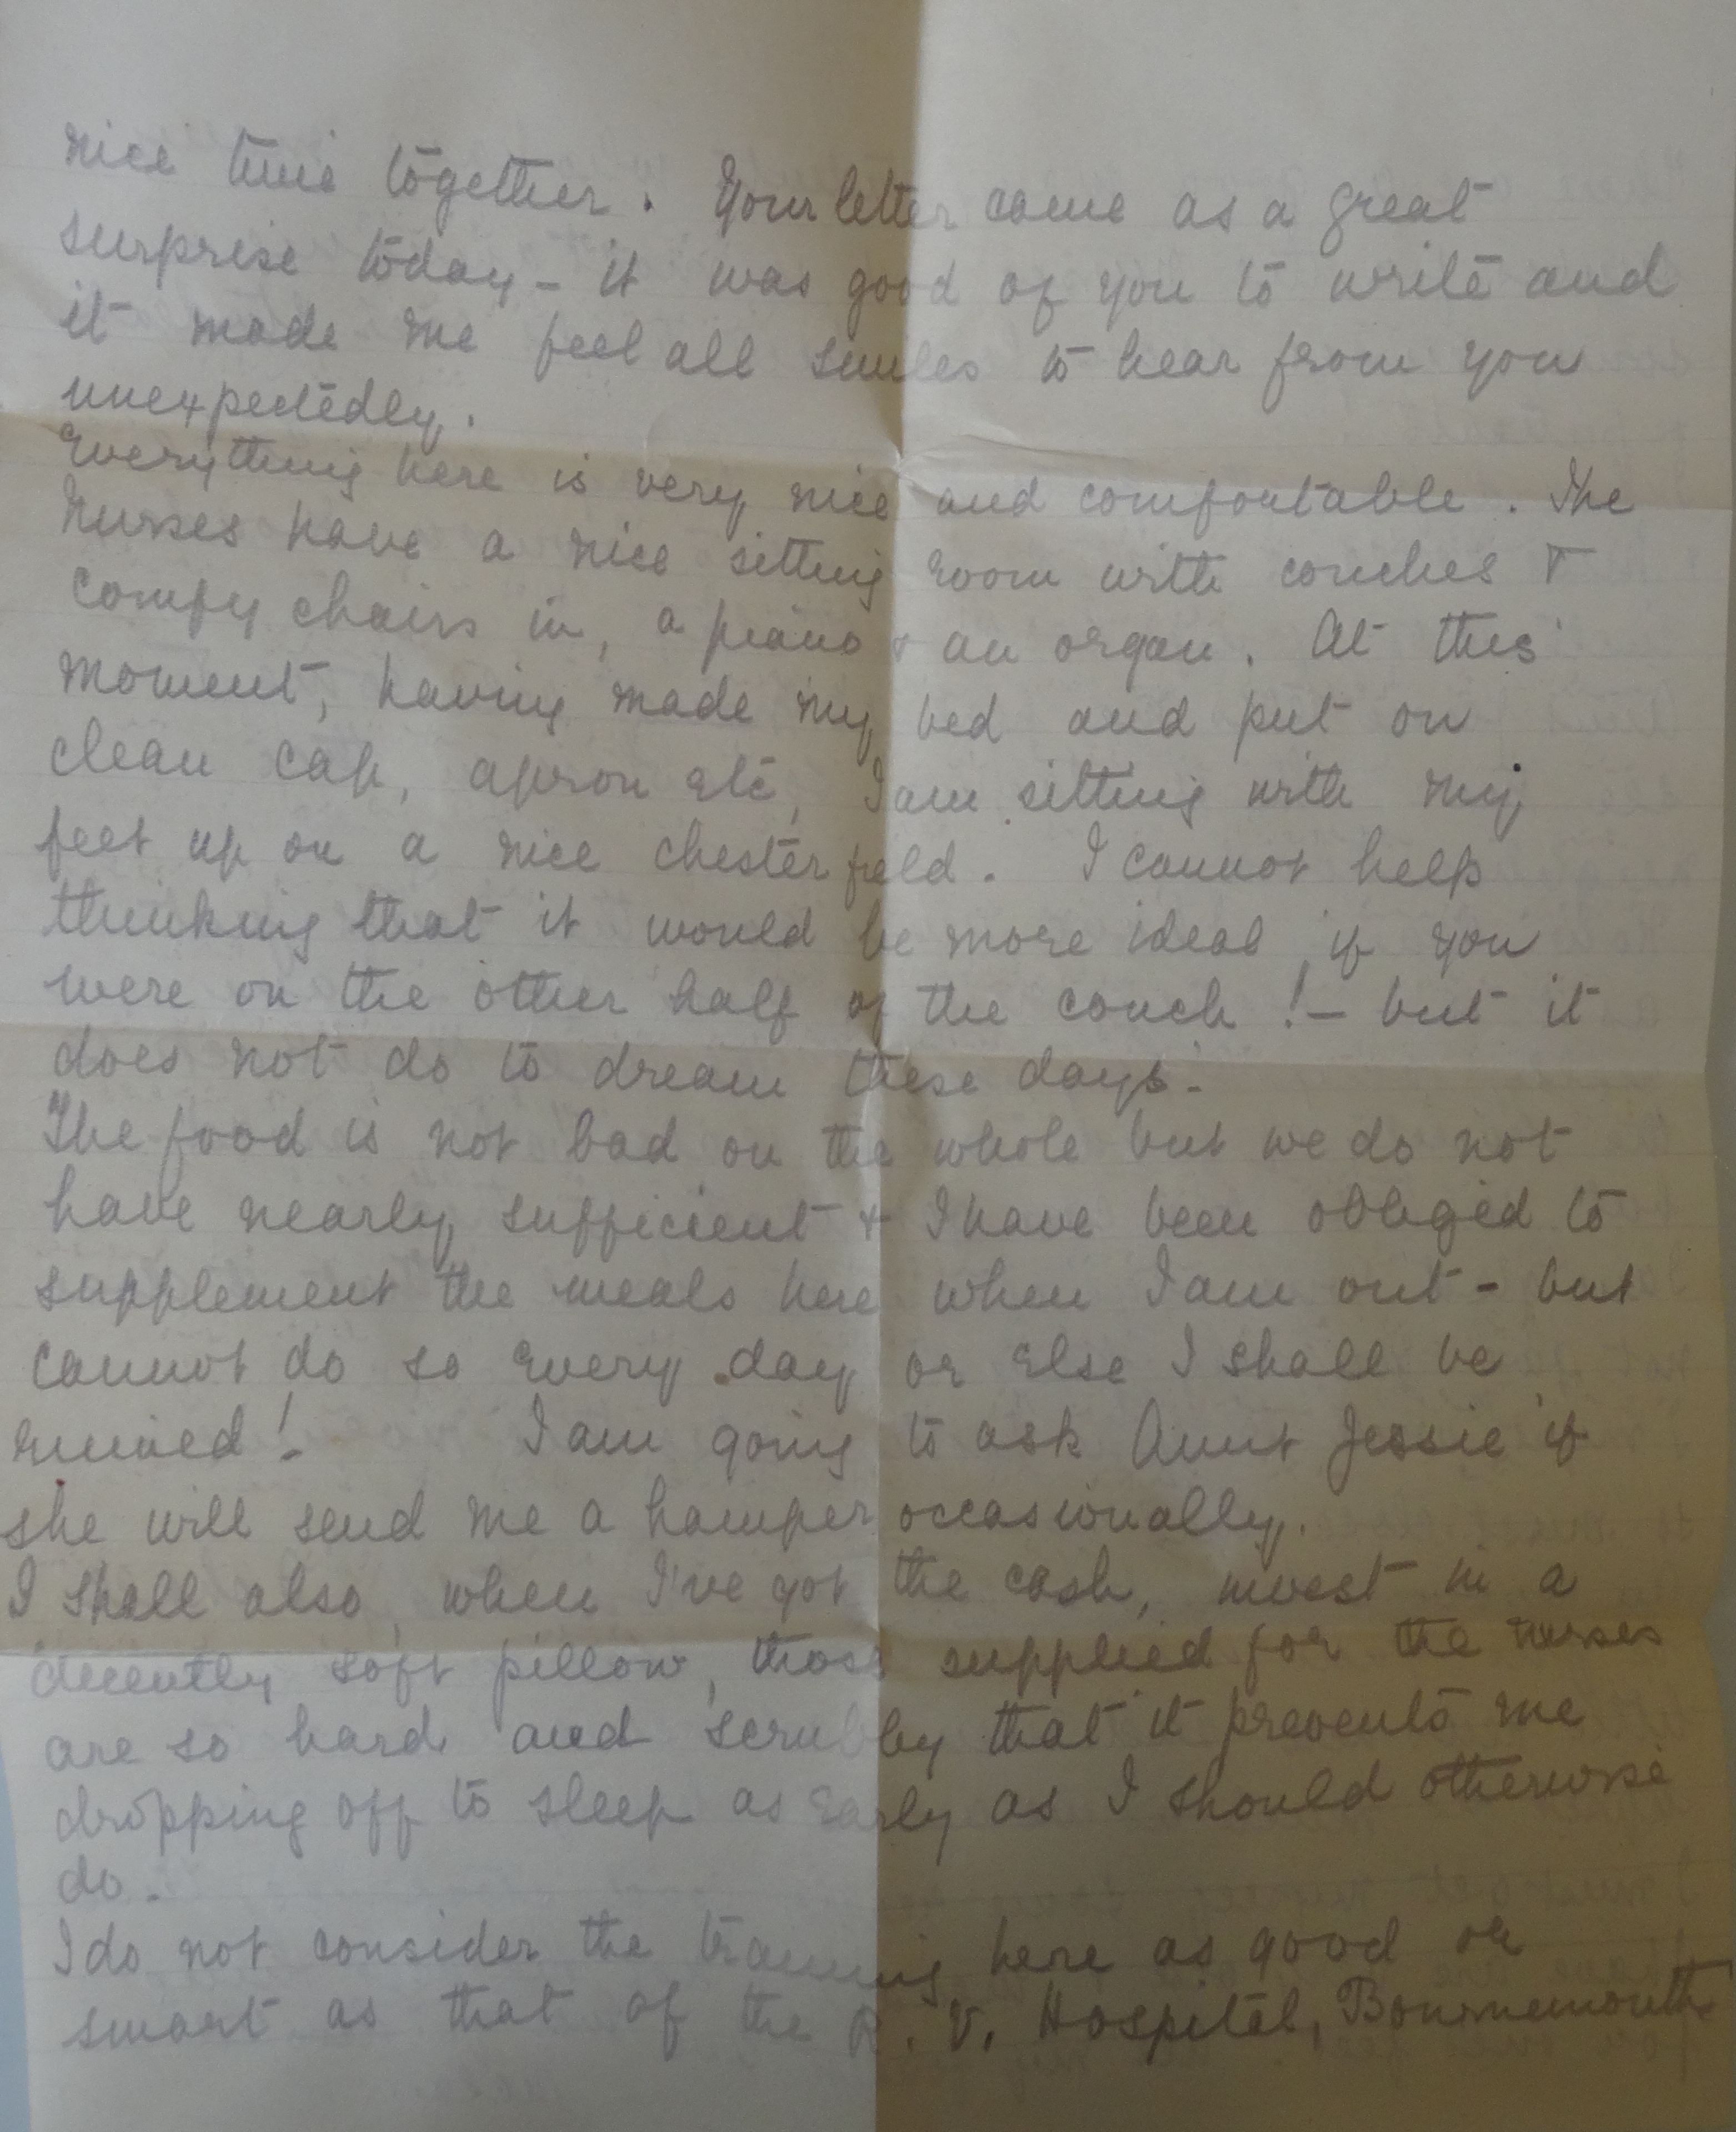 nice time together. Your letter came as a great
surprise today – it was good of you to write and
it made me feel all smiles to hear from you
unexpectedly.
Everything here is very nice and comfortable. The
Nurses have a nice sitting room with couches &
comfy chairs in, a piano & an organ. At this
moment, having made my bed and put on
clean cap, apron etc, I am sitting with my
feet up on a nice chesterfield. I cannot help
thinking that it would be more ideal if you
were on the other half of the couch! – but it
does not do to dream these days.
The food is not bad on the whole but we do not
have nearly sufficient & I have been obliged to
supplement the meals here when I am out – but
cannot do so every day or else I shall be
ruined! I am going to ask Aunt Jessie if
she will send me a hamper occasionally.
I shall also, when I've got the cash, invest in a
decently soft pillow, those supplied for the nurses
are so hard and scrubby that it prevents me
dropping off to sleep as early as I should otherwise
do.
I do not consider the training here as good or
smart as that of the R. V. Hospital, Bournemouth